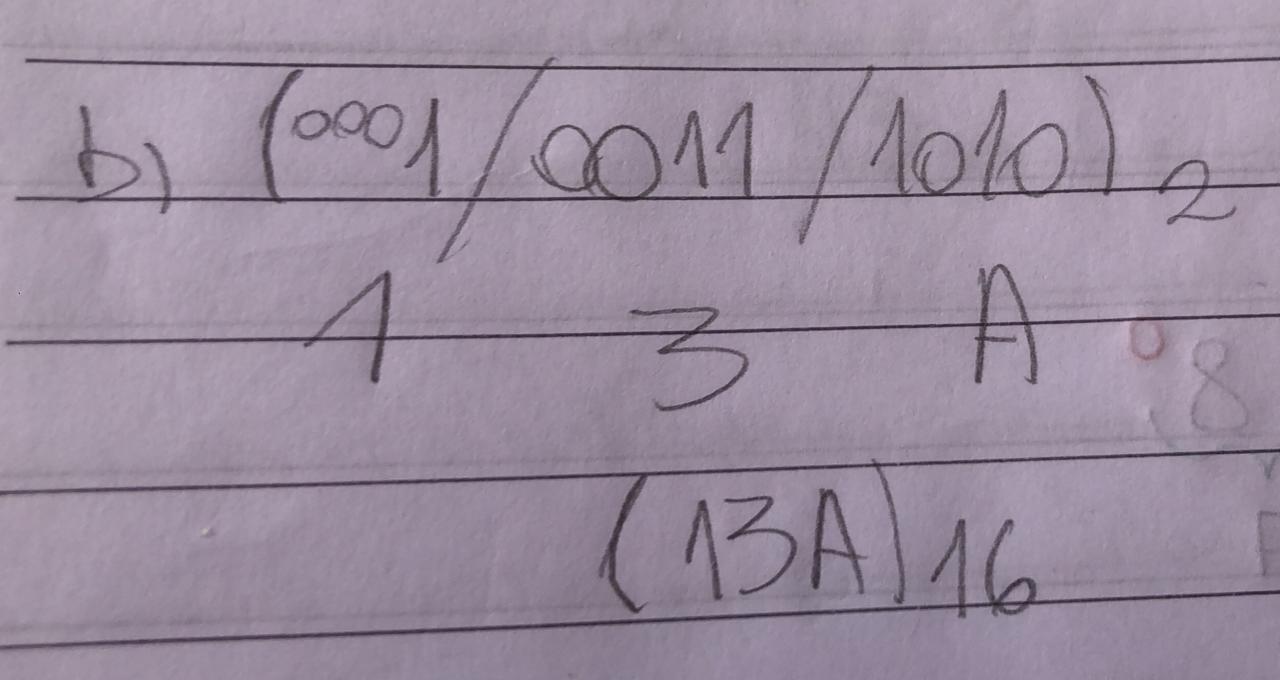 b) (0001/0011/1010)2
1 3 A
8
(13A)16